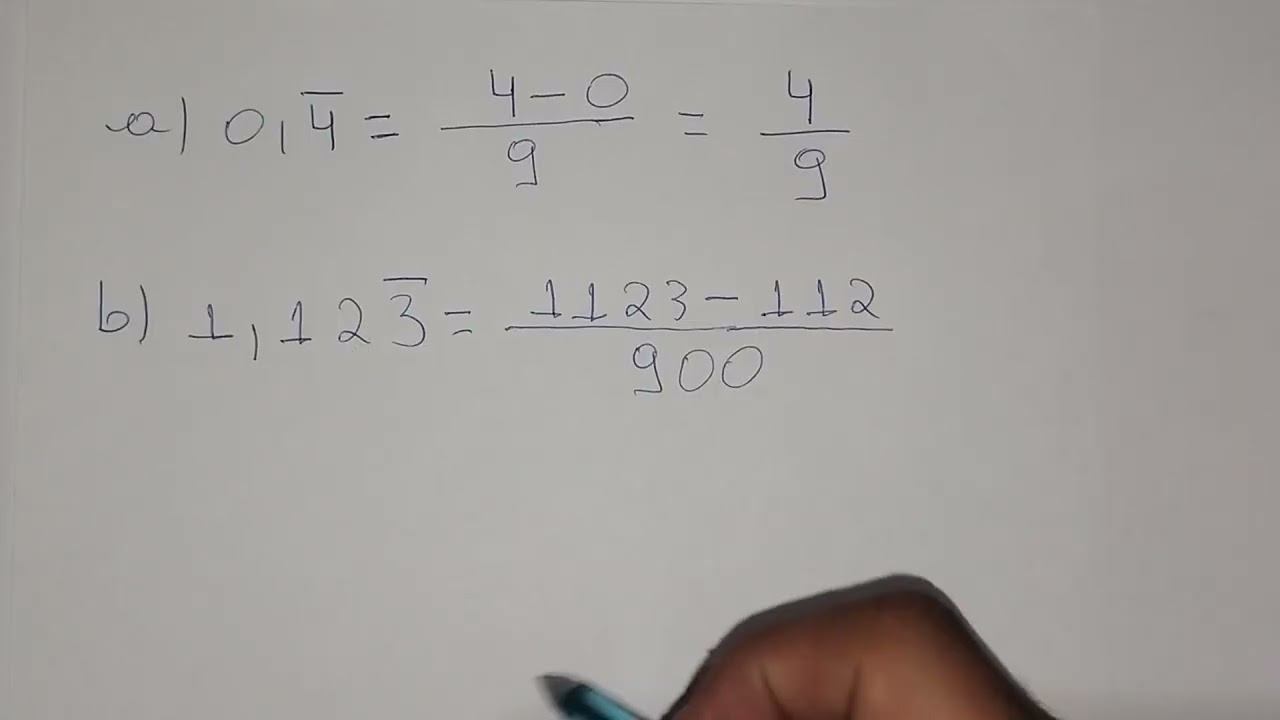 a) 0,4̅ = (4 - 0)/9 = 4/9
b) 1,123̅ = (1123 - 112)/900